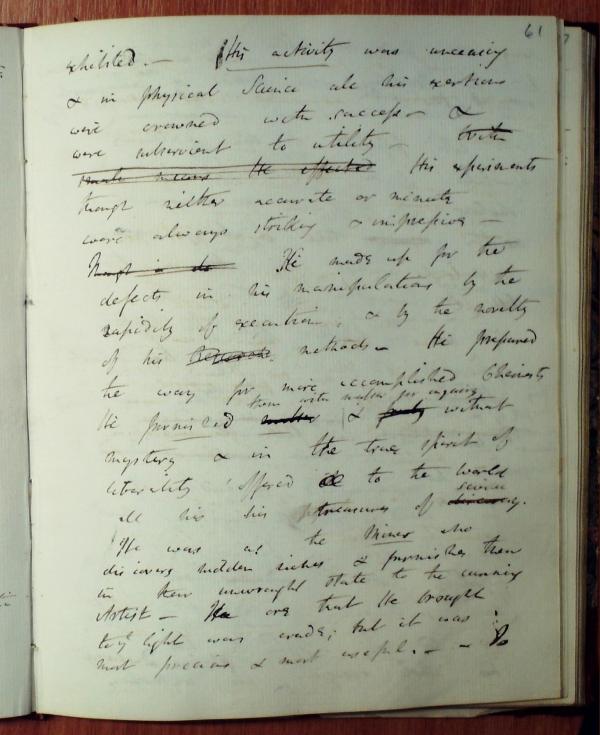 61
exhibited. — His activity was unceasing
& in physical Science all his exertions
were crowned with success — &
were subservient to utility — With
small means He effected His experiments
though neither accurate or minute
were always striking & impressive —
He made up for the
defects in his manipulations by the
rapidity of execution, & by the novelty
of his methods — He prepared
the way for more accomplished Chemists
them with matter for enquiry
He furnished & without
mystery & in the true spirit of
liberality offered to the world
science
all his treasures of discovery.
He was as the Miner who
discovers hidden riches & furnishes them
in their unwrought state to the cunning
Artist — The ore that He brought
to light was crude; but it was
most precious & most useful. — —